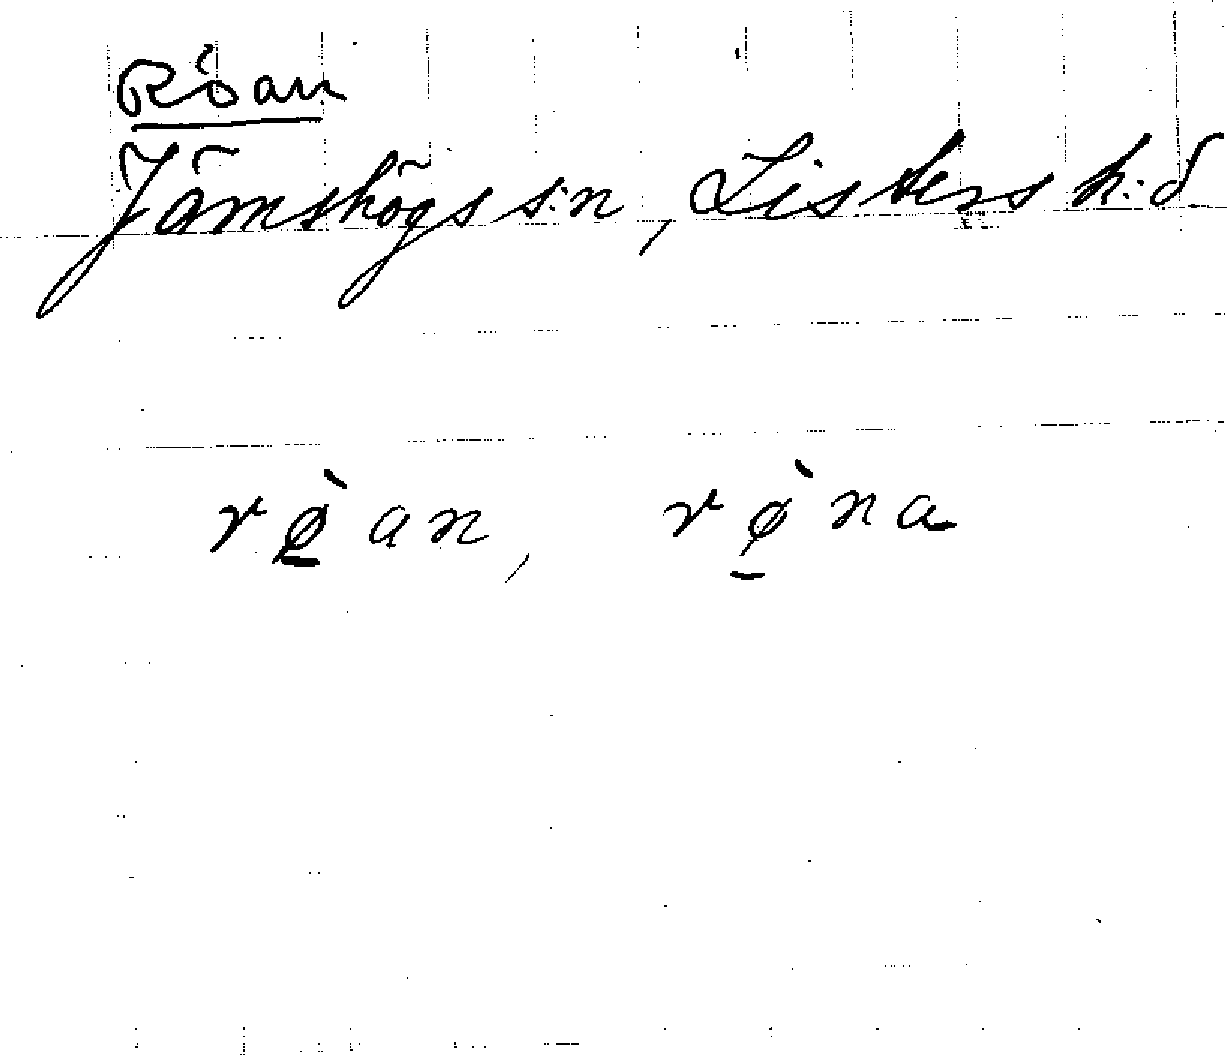 Röan
Jämshögs s:n, Listers h:d.
rø̱̀an, rø̱̀na